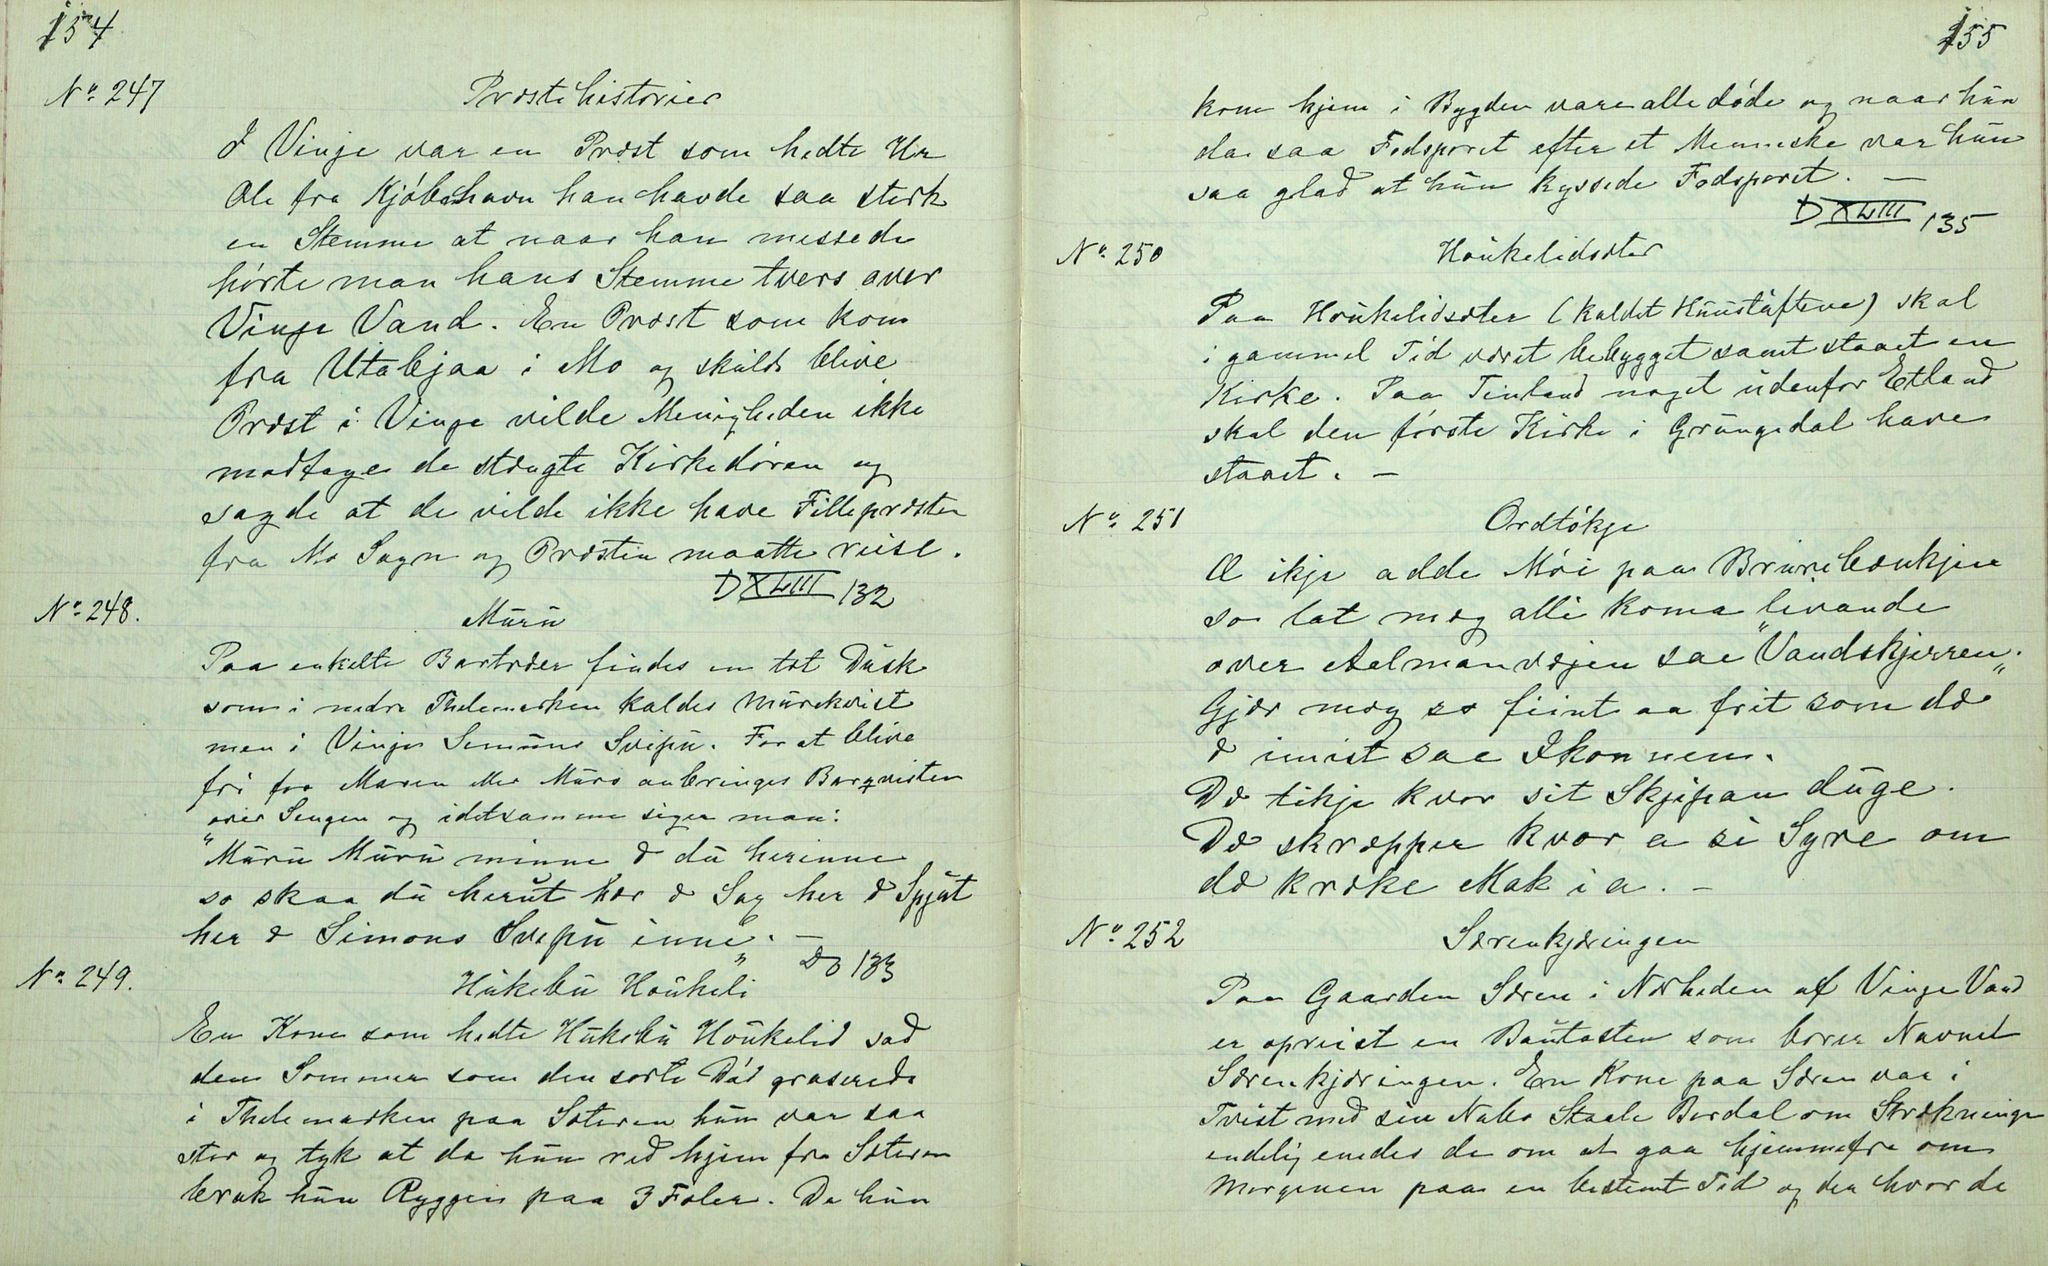 154
No 247
Præstehistorier
I Vinje var en Præst som hedte Hr
Ole fra Kjøbehavn han havde saa sterk
en Stemme at naar han messede
hørte man hans Stemme tvers over
Vinje Vand. En Præst som kom
fra Utabjaa i Mo og skulde blive
Præst i Vinje vilde Menigheden ikke
modtage de stængte Kirkedøren og
sagde at de vilde ikke have Fillepræsten
fra Mo Sogn og Præsten maatte reise.
D XLIII 132
No 248.
Muru
Paa enkelte Bartræer findes en tæt Dusk
som i nedre Thelemarken kaldes Murekvist
men i Vinje Simuns Svipu. For at blive
fri for Maren eller Muro anbringes Barqvisten
over Sengen og idetsamme siger man:
"Muru Muru minne æ du herinne
so skaa du herut her æ Sag her æ Spjut
her æ Simons Svipu inne". —
Do 133
No 249.
Hukebu Houkeli
En Kone som hedte Hukebu Houkelid sad
den Sommer som den sorte Død graserede
i Thelemarken paa Sæteren hun var saa
stor og tyk at da hun red hjem fra Sæteren
brak hun Ryggen paa 3 Foler. Da hun
155
kom hjem i Bygden vare alle døde og naar hun
da saa Fodsporet efter et Menneske var hun
saa glad at hun kyssede Fodsporet. —
D XLIII 135
No 250
Houkelidsæter
Paa Houkelidsæter (kaldet Huustuftene) skal
i gammel Tid været bebygget samt staaet en
Kirke. Paa Tinland noget udenfor Etland
skal den første Kirke i Grungedal have
staaet. —
No 251
Ordtøkje
Æ ikje adde Møi paa Brurebænkjen
so lat mæg alli koma livande
over Aalmanvæjen sae "Vandskjerren".
Gjær mæg so fiint aa frit som dæ
æ imist sae Ikonnen.
Dæ tikje kvor sit Skjipan duge.
Dæ skræpper kvor a si Syre om
dæ kræke Mak i a. —
No 252
Særenkjæringen
Paa Gaarden Særen i Nærheden af Vinje Vand
er opreist en Bautasten som bærer Navnet
Særenkjæringen. En Kone paa Særen var i
Tvist med sin Nabo Staale Bordal om Strækninge
endelig enedes de om at gaa hjemmefra om
Morgenen paa en bestemt Tid og der hvor de